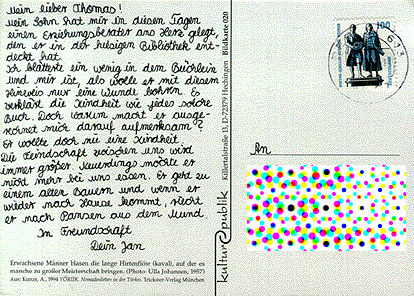 Mein lieber Thomas!
Mein Sohn hat mir in diesen Tagen
einen Erziehungsberater ans Herz gelegt,
den er in der hiesigen Bibliothek ent-
deckt hat.
Ich blätterte ein wenig in dem Büchlein
und mir ist, als wolle er mit diesem
Hinweis nur eine Wunde bohren. Es
verklärt die Kindheit wie jedes solche
Buch. Doch warum macht er ausge-
rechnet mich darauf aufmerksam??
Er wollte doch nie eine Kindheit.
Die Feindschaft zwischen uns wird
immer größer. Neuerdings möchte er
nicht mehr bei uns essen. Er geht zu
einem alten Bauern und wenn er
wieder nach Hause kommt, riecht
er nach Pansen aus dem Mund.
In Freundschaft
Dein Jan
Erwachsene Männer blasen die lange Hirtenflöte (kaval), auf der es
manche zu großer Meisterschaft bringen. (Photo: Ulla Johansen, 1957)
Aus: Kunze, A., 1994 YÖRÜK. Nomadenleben in der Türkei. Trickster-Verlag München
kulturRepublik
Killertalstraße 13, D-72379 Hechingen
Bildkarte 020
100
An